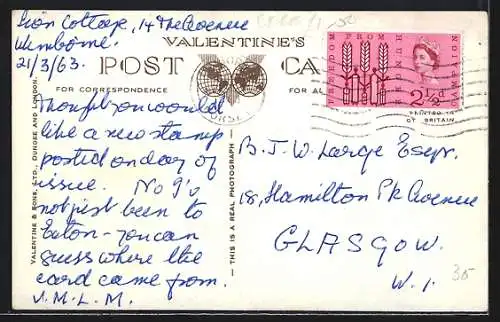 Lion Cottage, 14 The Avenue
Wimborne.
21/3/63.
VALENTINE'S
POST CA
FOR CORRESPONDENCE
FOR AL
FREEDOM FROM HUNGER
CAMPAIGN
2½d
PRINTED IN
GT BRITAIN
Thought you would
like a new stamp
posted on day of
issue. No I's
not just been to
Eaton - you can
guess where the
card came from.
J.M.L.M.
B.J.W. Large Esqr.
18, Hamilton Pk Avenue
GLASGOW.
W.1.
35
VALENTINE & SONS, LTD., DUNDEE AND LONDON.
THIS IS A REAL PHOTOGRAPH